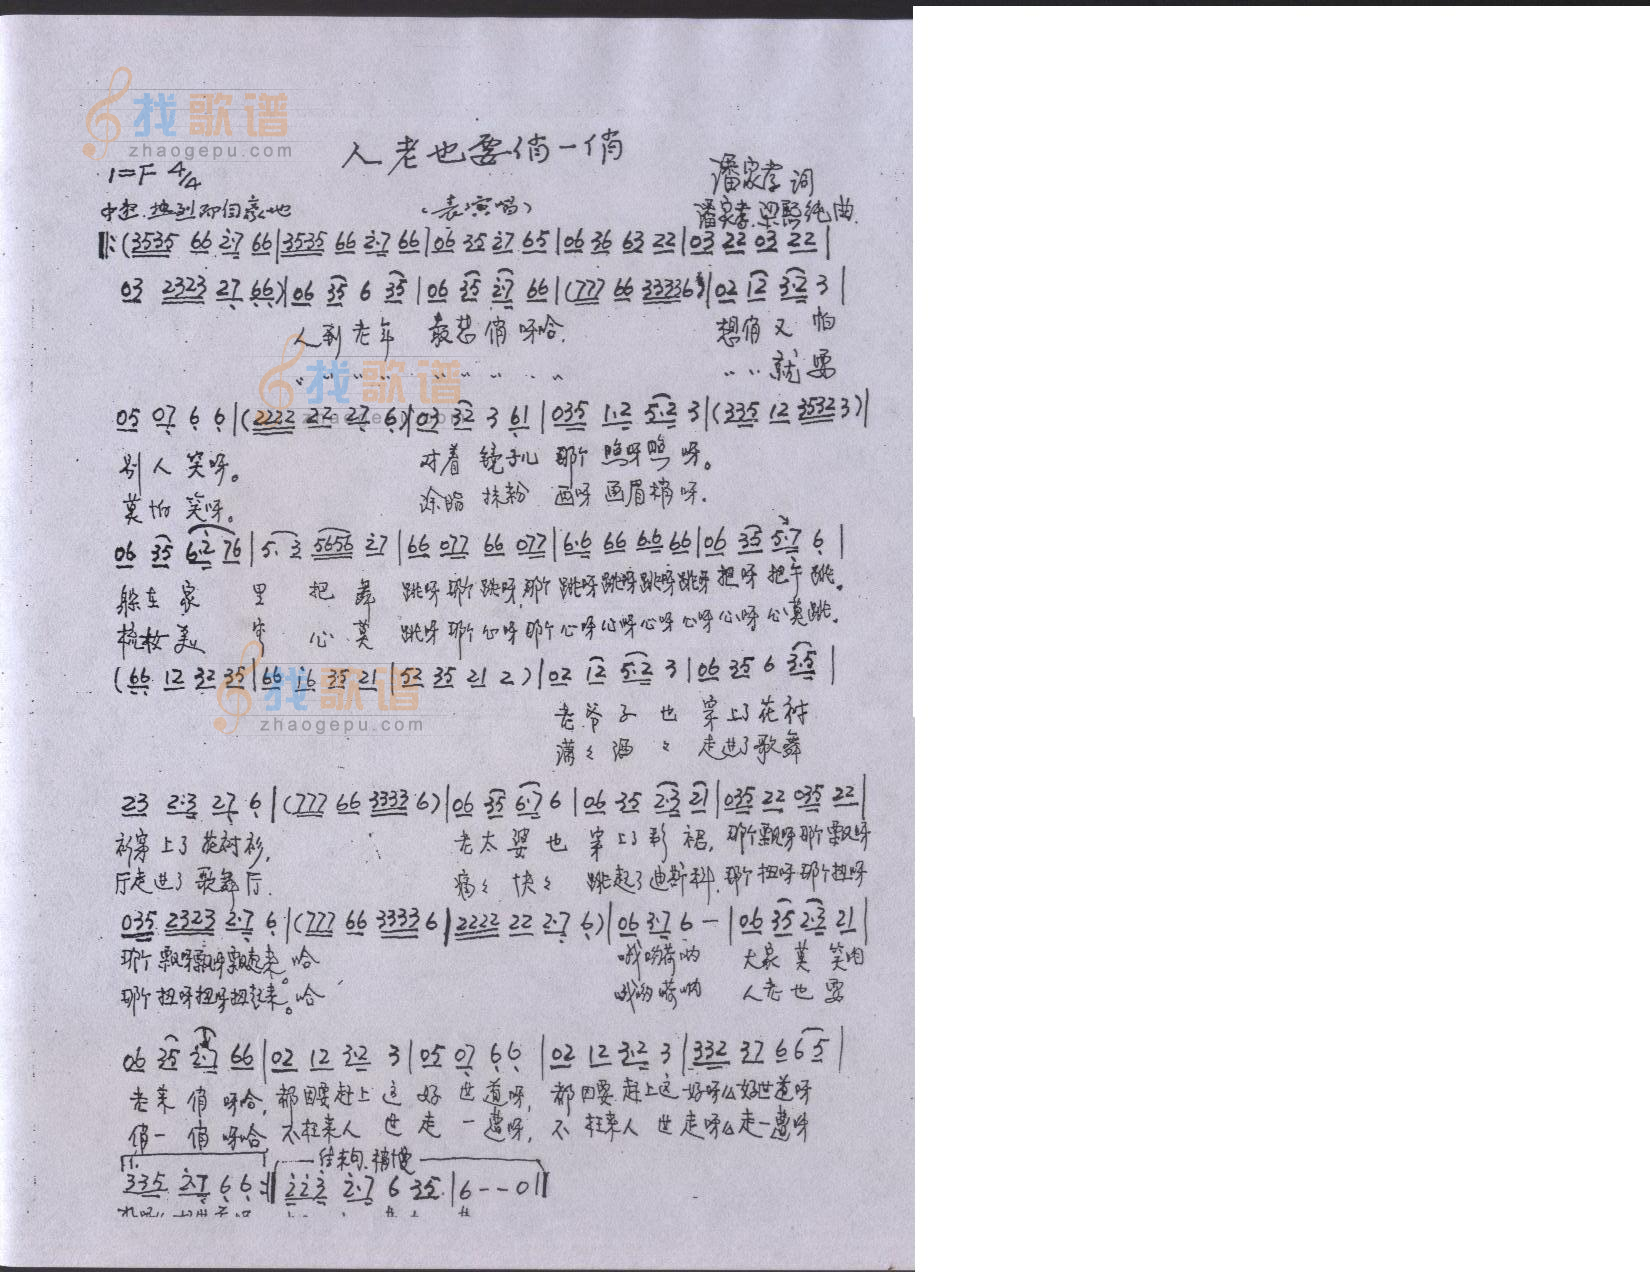 找歌谱
zhaogepu.com
人老也要俏一俏
1=F 4/4
潘家孝 词
(表演唱)
潘家孝 曲.
‖:(3535 66 2·7 66|3535 66 2·7 66|06 35 27 65|06 36 63 22|03 22 03 22|
03 2323 27 66)|06 35 6 35|06 35 2·7 66|(777 66 33336)|02 12 3·2 3|
人到老年 最想俏呀哈. 想俏又怕
找歌谱
就要
05 07 6 6|(2222 22 27 6)|03 32 3 61|035 1·2 5·2 3|(335 12 35323)|
zhaogepu.com
别人笑呀。 对着镜子儿 那个照呀照呀。
莫怕笑呀。 涂脂抹粉 画呀画眉梢呀.
06 35 6·2 76|5· 3 5656 27|66 077 66 077|6·6 66 6·6 66|06 35 5·7 6|
躲在家 里 把舞 跳呀那个跳呀,那个跳呀跳呀跳呀跳呀
梳妆美 心莫 跳呀那个心呀那个心呀心呀心呀心呀心呀心莫跳.
(66 12 32 35|66 16 35 21|52 35 21 2)|02 12 5·2 3|06 35 6 3·5|
找歌谱
zhaogepu.com
老爷子也 穿上了花衬
潇々洒々 走进了歌舞
23 2·3 27 6|(777 66 3333 6)|06 35 6·7 6|06 35 2·3 21|035 22 035 22|
衫穿上了花衬衫, 老太婆也 穿上了彩裙, 那个飘呀那个飘呀
厅走进了歌舞厅. 痛々快々 跳起了迪斯科, 那个扭呀那个扭呀
035 2323 2·7 6|(777 66 3333 6|2222 22 2·7 6)|06 3·7 6 —|06 35 2·3 21|
那个飘呀飘呀飘起来。哈 哦哟嗬哟 大家莫笑咱
那个扭呀扭呀扭起来。哈 哦哟嗬哟 人老也要
06 35 2·7 66|02 12 3·2 3|05 07 6 6|02 12 3·2 3|332 37 6 6 5|
老来俏呀哈, 都因要赶上这好世道呀, 都因要赶上这好呀么好世道呀
俏一俏呀哈 不枉来人世走一遭呀, 不枉来人世走呀么走一遭呀
1. 结束句.稍慢
335 2·7 6 6:‖223 2·7 6 35|6--0‖